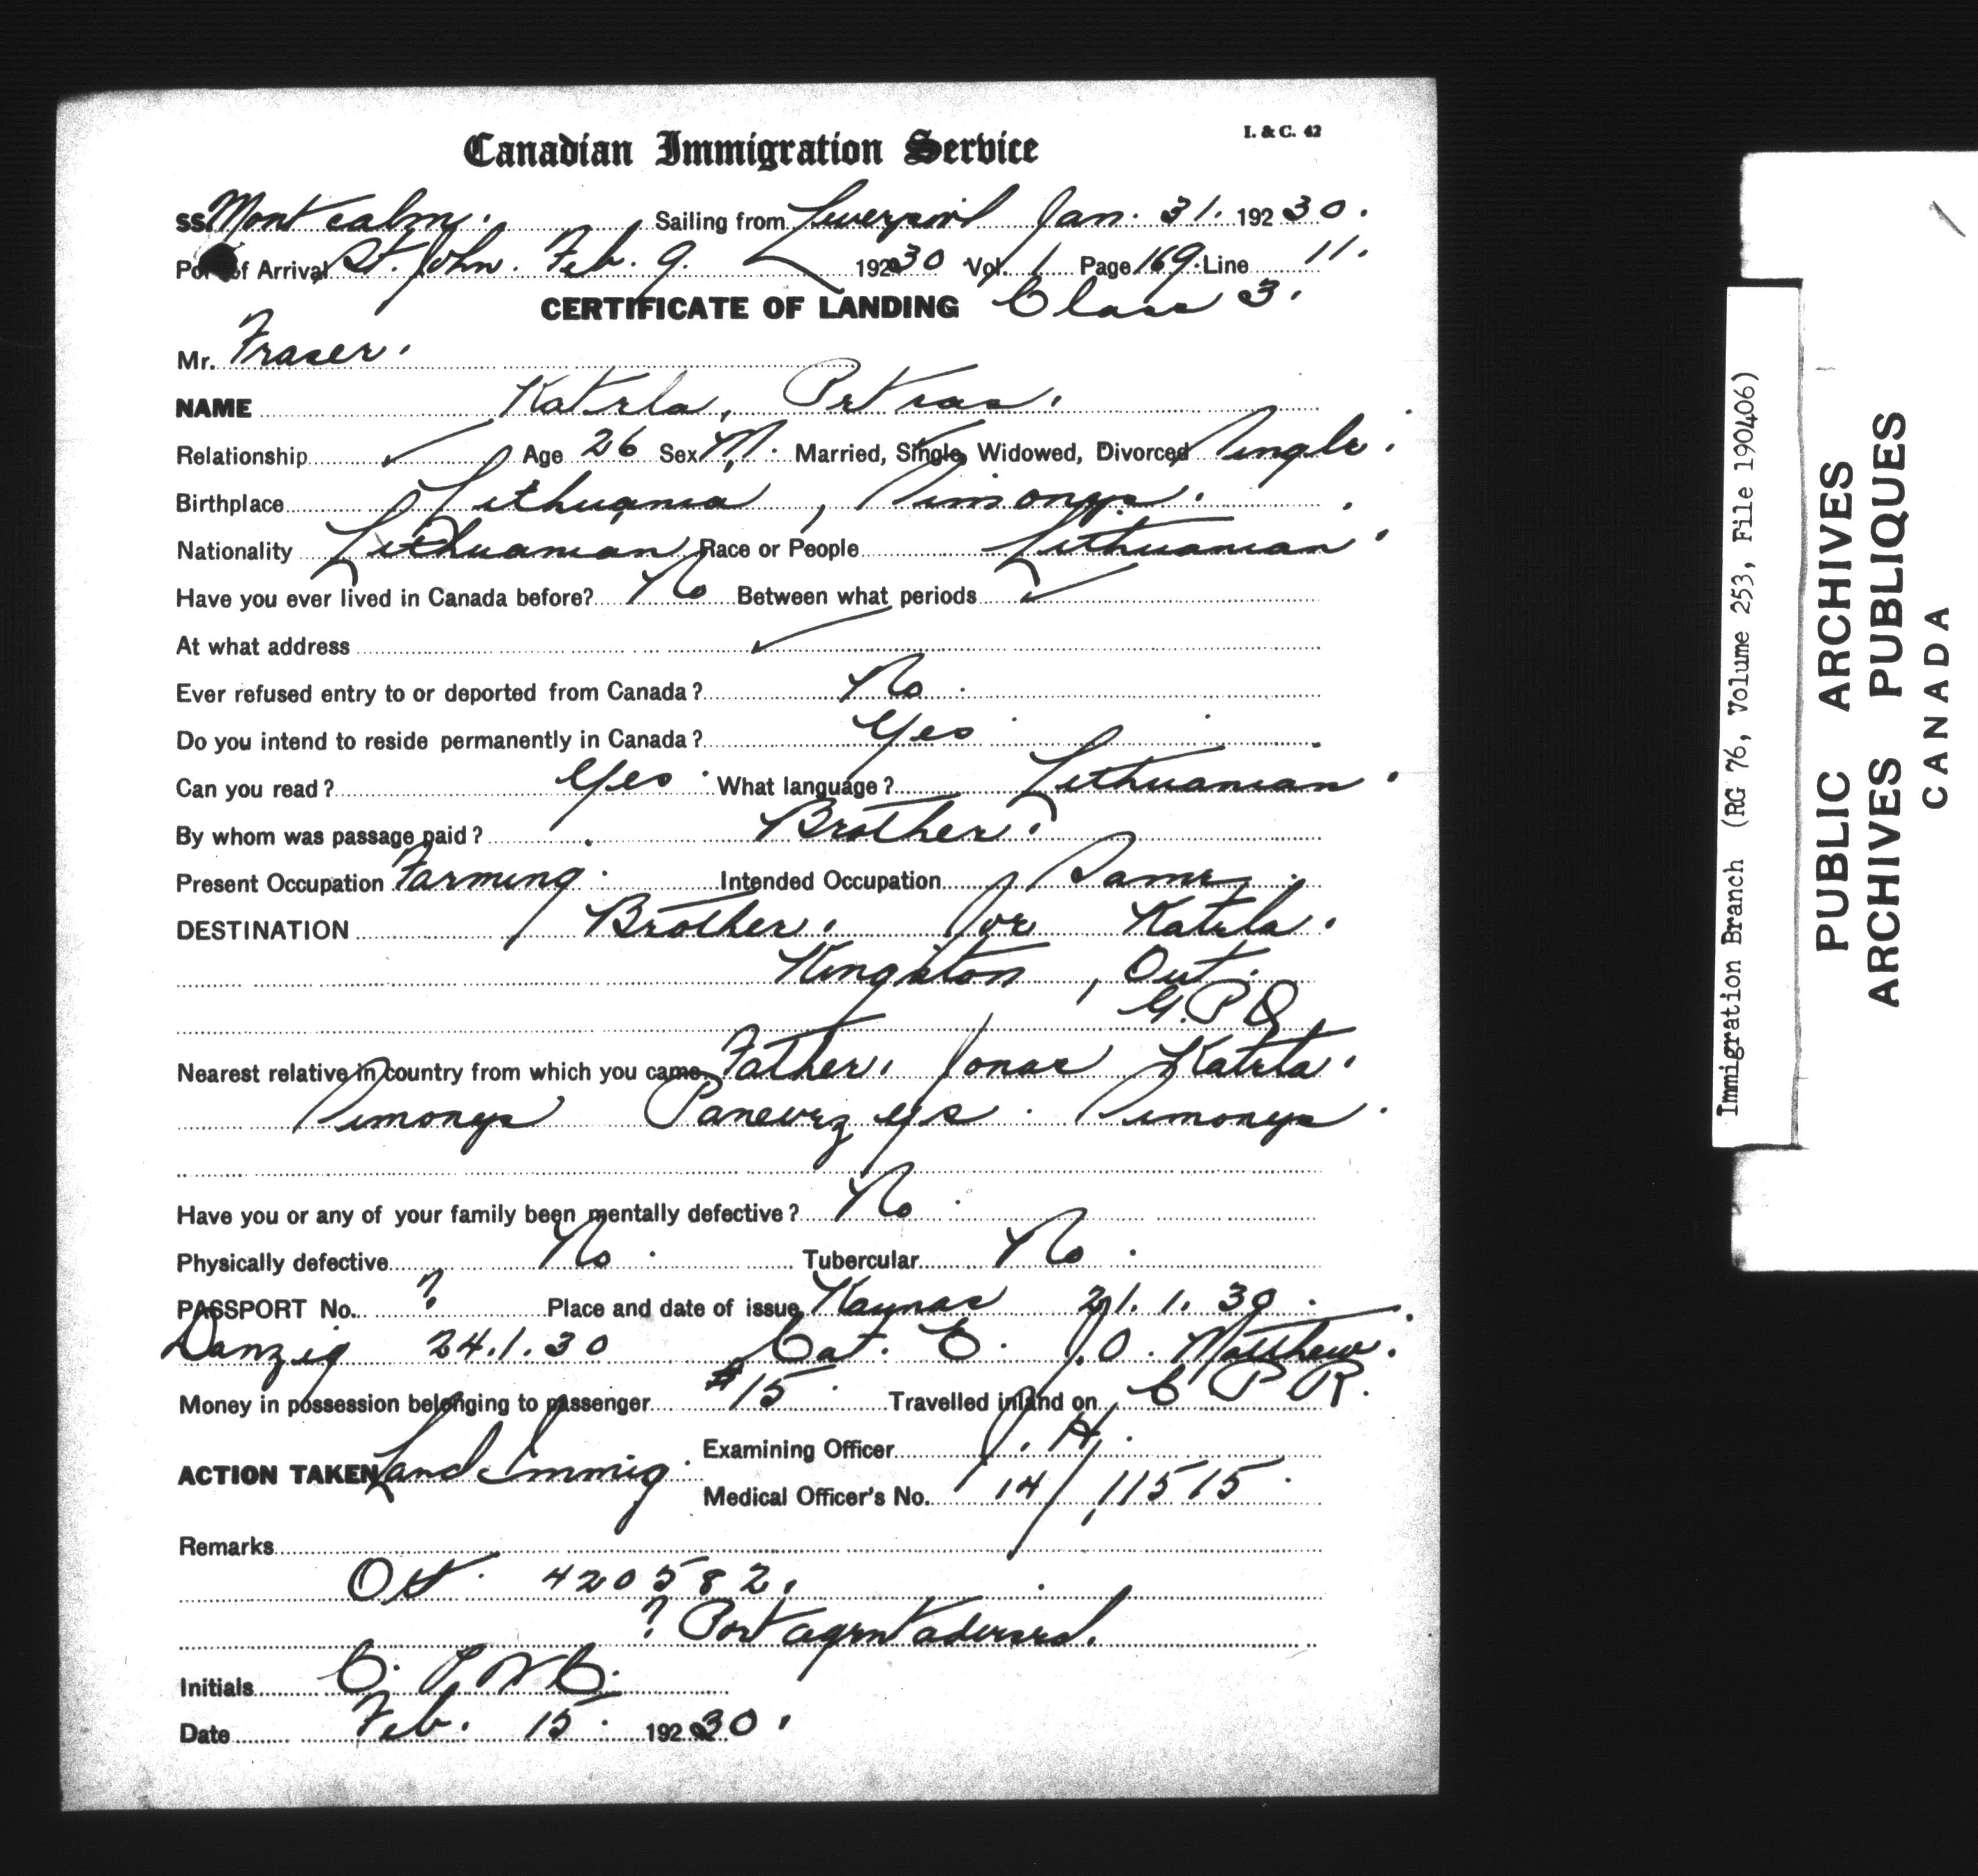 I. & C. 42
Canadian Immigration Service
SS Montcalm. Sailing from Liverpool Jan. 31. 192 30.
Port of Arrival St. John. Feb. 9. 192 30 Vol. 1 Page 169. Line 11.
CERTIFICATE OF LANDING Class 3.
Mr. Fraser.
NAME Katrla, Petras.
Relationship ✓ Age 26 Sex M. Married, Single, Widowed, Divorced Single.
Birthplace Lithuania, Simonys.
Nationality Lithuanian Race or People Lithuanian.
Have you ever lived in Canada before? No Between what periods ✓
At what address ✓
Ever refused entry to or deported from Canada? No.
Do you intend to reside permanently in Canada? Yes
Can you read? Yes. What language? Lithuanian.
By whom was passage paid? Brother.
Present Occupation Farming. Intended Occupation Same.
DESTINATION Brother. Joe Katrla.
Kingston, Ont.
G.P.O
Nearest relative in country from which you came. Father. Jonas Katrla.
Simonys Panevezys. Simonys.
Have you or any of your family been mentally defective? No.
Physically defective No. Tubercular No.
PASSPORT No. ? Place and date of issue Kaunas 21.1.30.
Danzig 24.1.30 Cat. E. J.O. Matthew.
Money in possession belonging to passenger $15. Travelled inland on C P R.
Examining Officer J.H.
ACTION TAKEN Land Immig.
Medical Officer's No. 14/11515.
Remarks
Ott. 420582.
? Port agent advised.
Initials
Date Feb. 15. 192 30.
Immigration Branch (RG 76, Volume 253, File 190406)
PUBLIC ARCHIVES
ARCHIVES PUBLIQUES
CANADA